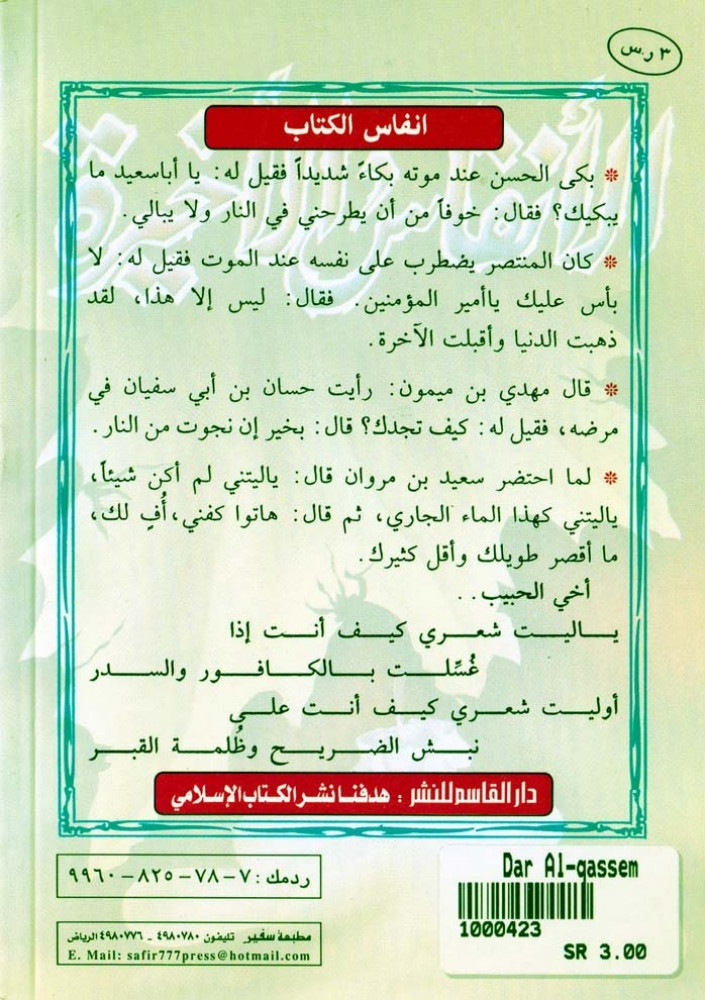 ٣ ر.س
انفاس الكتاب
* بكى الحسن عند موته بكاءً شديداً فقيل له: يا أباسعيد ما
يبكيك؟ فقال: خوفاً من أن يطرحني في النار ولا يبالي.
* كان المنتصر يضطرب على نفسه عند الموت فقيل له: لا
بأس عليك ياأمير المؤمنين. فقال: ليس إلا هذا، لقد
ذهبت الدنيا وأقبلت الآخرة.
* قال مهدي بن ميمون: رأيت حسان بن أبي سفيان في
مرضه، فقيل له: كيف تجدك؟ قال: بخير إن نجوت من النار.
* لما احتضر سعيد بن مروان قال: ياليتني لم أكن شيئاً،
ياليتني كهذا الماء الجاري، ثم قال: هاتوا كفني، أُفٍ لك،
ما أقصر طويلك وأقل كثيرك.
أخي الحبيب..
يـاليت شعري كيف أنت إذا
غُسِّلت بالكافور والسدر
أوليت شعري كيف أنت على
نبش الضريح وظُلمة القبر
دار القاسم للنشر : هدفنا نشر الكتاب الإسلامي
ردمك : ٧-٧٨-٨٢٥-٩٩٦٠
مطبعة سفير تليفون ٤٩٨٠٧٨٠ ـ ٤٩٨٠٧٧٦ الرياض
E. Mail: safir777press@hotmail.com
Dar Al-qassem
1000423
SR 3.00
الأنفاس الأخيرة